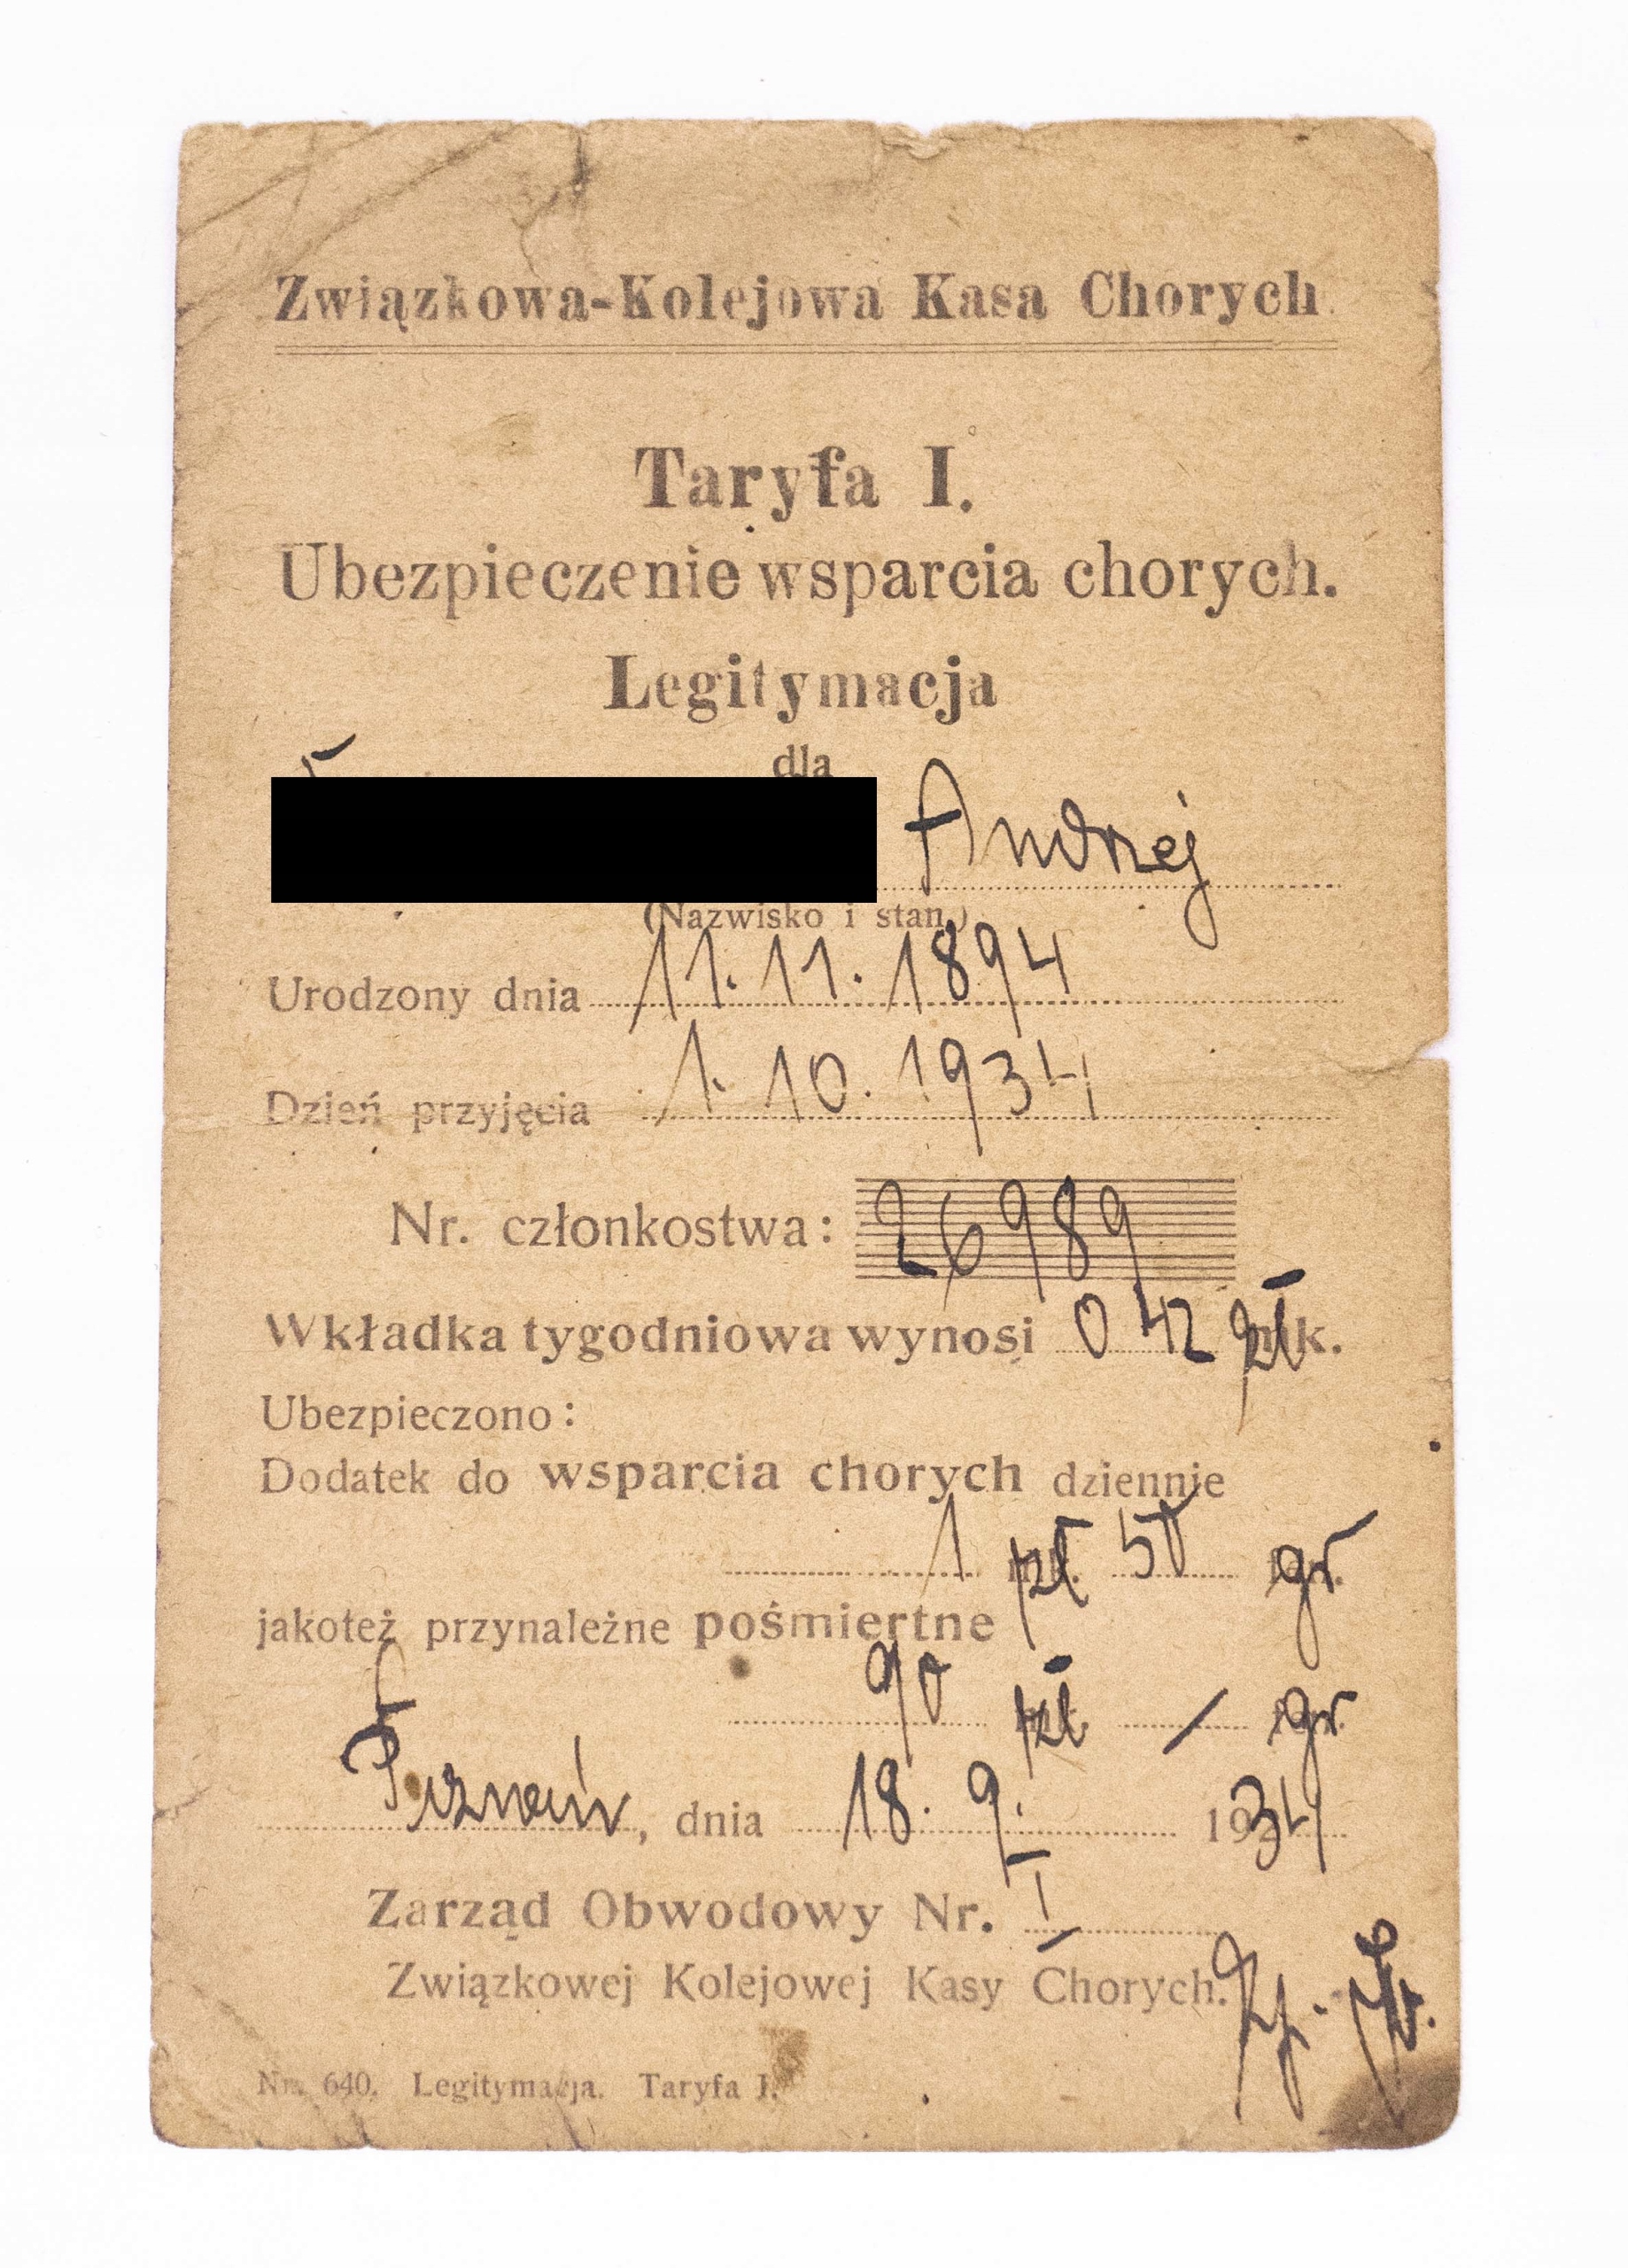 Związkowa-Kolejowa Kasa Chorych.
Taryfa I.
Ubezpieczenie wsparcia chorych.
Legitymacja
dla
Andrzej
(Nazwisko i stan.)
Urodzony dnia 11. 11. 1894
Dzień przyjęcia 1. 10. 1934
Nr. członkostwa: 26989
Wkładka tygodniowa wynosi 0 42 zł mk.
Ubezpieczono:
Dodatek do wsparcia chorych dziennie
1 zł 50 gr
jakoteż przynależne pośmiertne
90 zł — gr
Poznań, dnia 18. 9. 1934
Zarząd Obwodowy Nr. I
Związkowej Kolejowej Kasy Chorych.
Nr. 640. Legitymacja. Taryfa I.